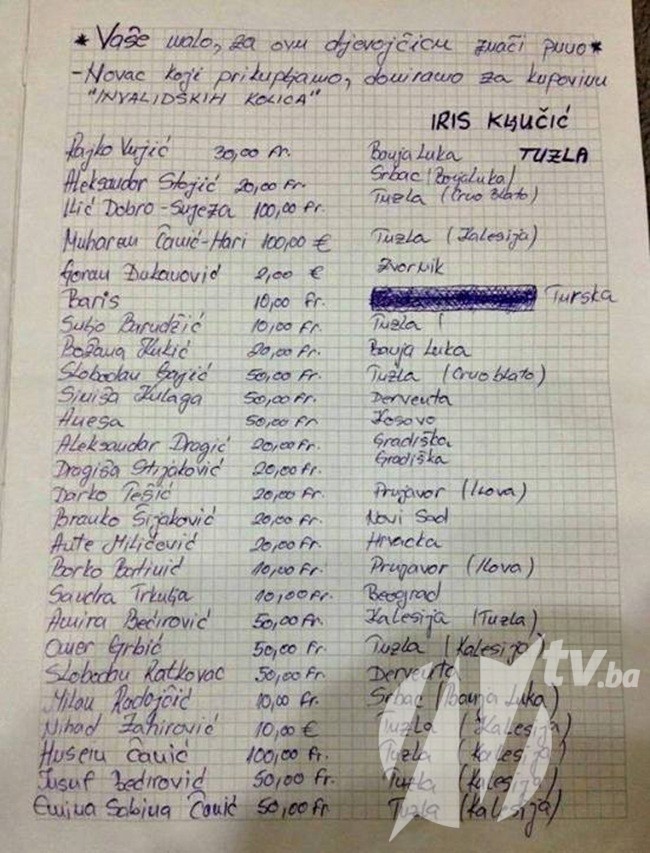 * Vaše malo, za ovu djevojčicu znači puno *
- Novac koji prikupljamo, doniramo za kupovinu
"INVALIDSKIH KOLICA"
IRIS KLJUČIĆ
TUZLA
Rajko Vujić 30,00 Fr. Banja Luka
Aleksandar Stojić 20,00 Fr. Srbac (Banja Luka)
Ilić Dobro-Snježa 100,00 Fr. Tuzla (Crvo blato)
Muharem Čanić-Hari 100,00 € Tuzla (Kalesija)
Goran Đukanović 2,00 € Zvornik
Baris 10,00 Fr. Turska
Suljo Barudžić 10,00 Fr. Tuzla
Božana Kukić 20,00 Fr. Banja Luka
Slobodan Gajić 50,00 Fr. Tuzla (Crvo blato)
Siniša Kulaga 50,00 Fr. Derventa
Anesa 50,00 Fr. Kosovo
Aleksandar Dragić 20,00 Fr. Gradiška
Dragiša Stijaković 20,00 Fr. Gradiška
Darko Tešić 20,00 Fr. Prnjavor (Ilova)
Branko Šijaković 20,00 Fr. Novi Sad
Ante Miličević 20,00 Fr. Hrvacka
Borko Botinić 10,00 Fr. Prnjavor (Ilova)
Sandra Trkulja 10,00 Fr. Beograd
Amira Bećirović 50,00 Fr. Kalesija (Tuzla)
Omer Grbić 50,00 Fr. Tuzla (Kalesija)
Slobodan Ratkovac 50,00 Fr. Derventa
Milan Radojčić 10,00 Fr. Srbac (Banja Luka)
Nihad Zahirović 10,00 € Tuzla (Kalesija)
Husein Čanić 100,00 Fr. Tuzla (Kalesija)
Jusuf Bećirović 50,00 Fr. Tuzla (Kalesija)
Emina Sabina Čanić 50,00 Fr Tuzla (Kalesija)
tv.ba